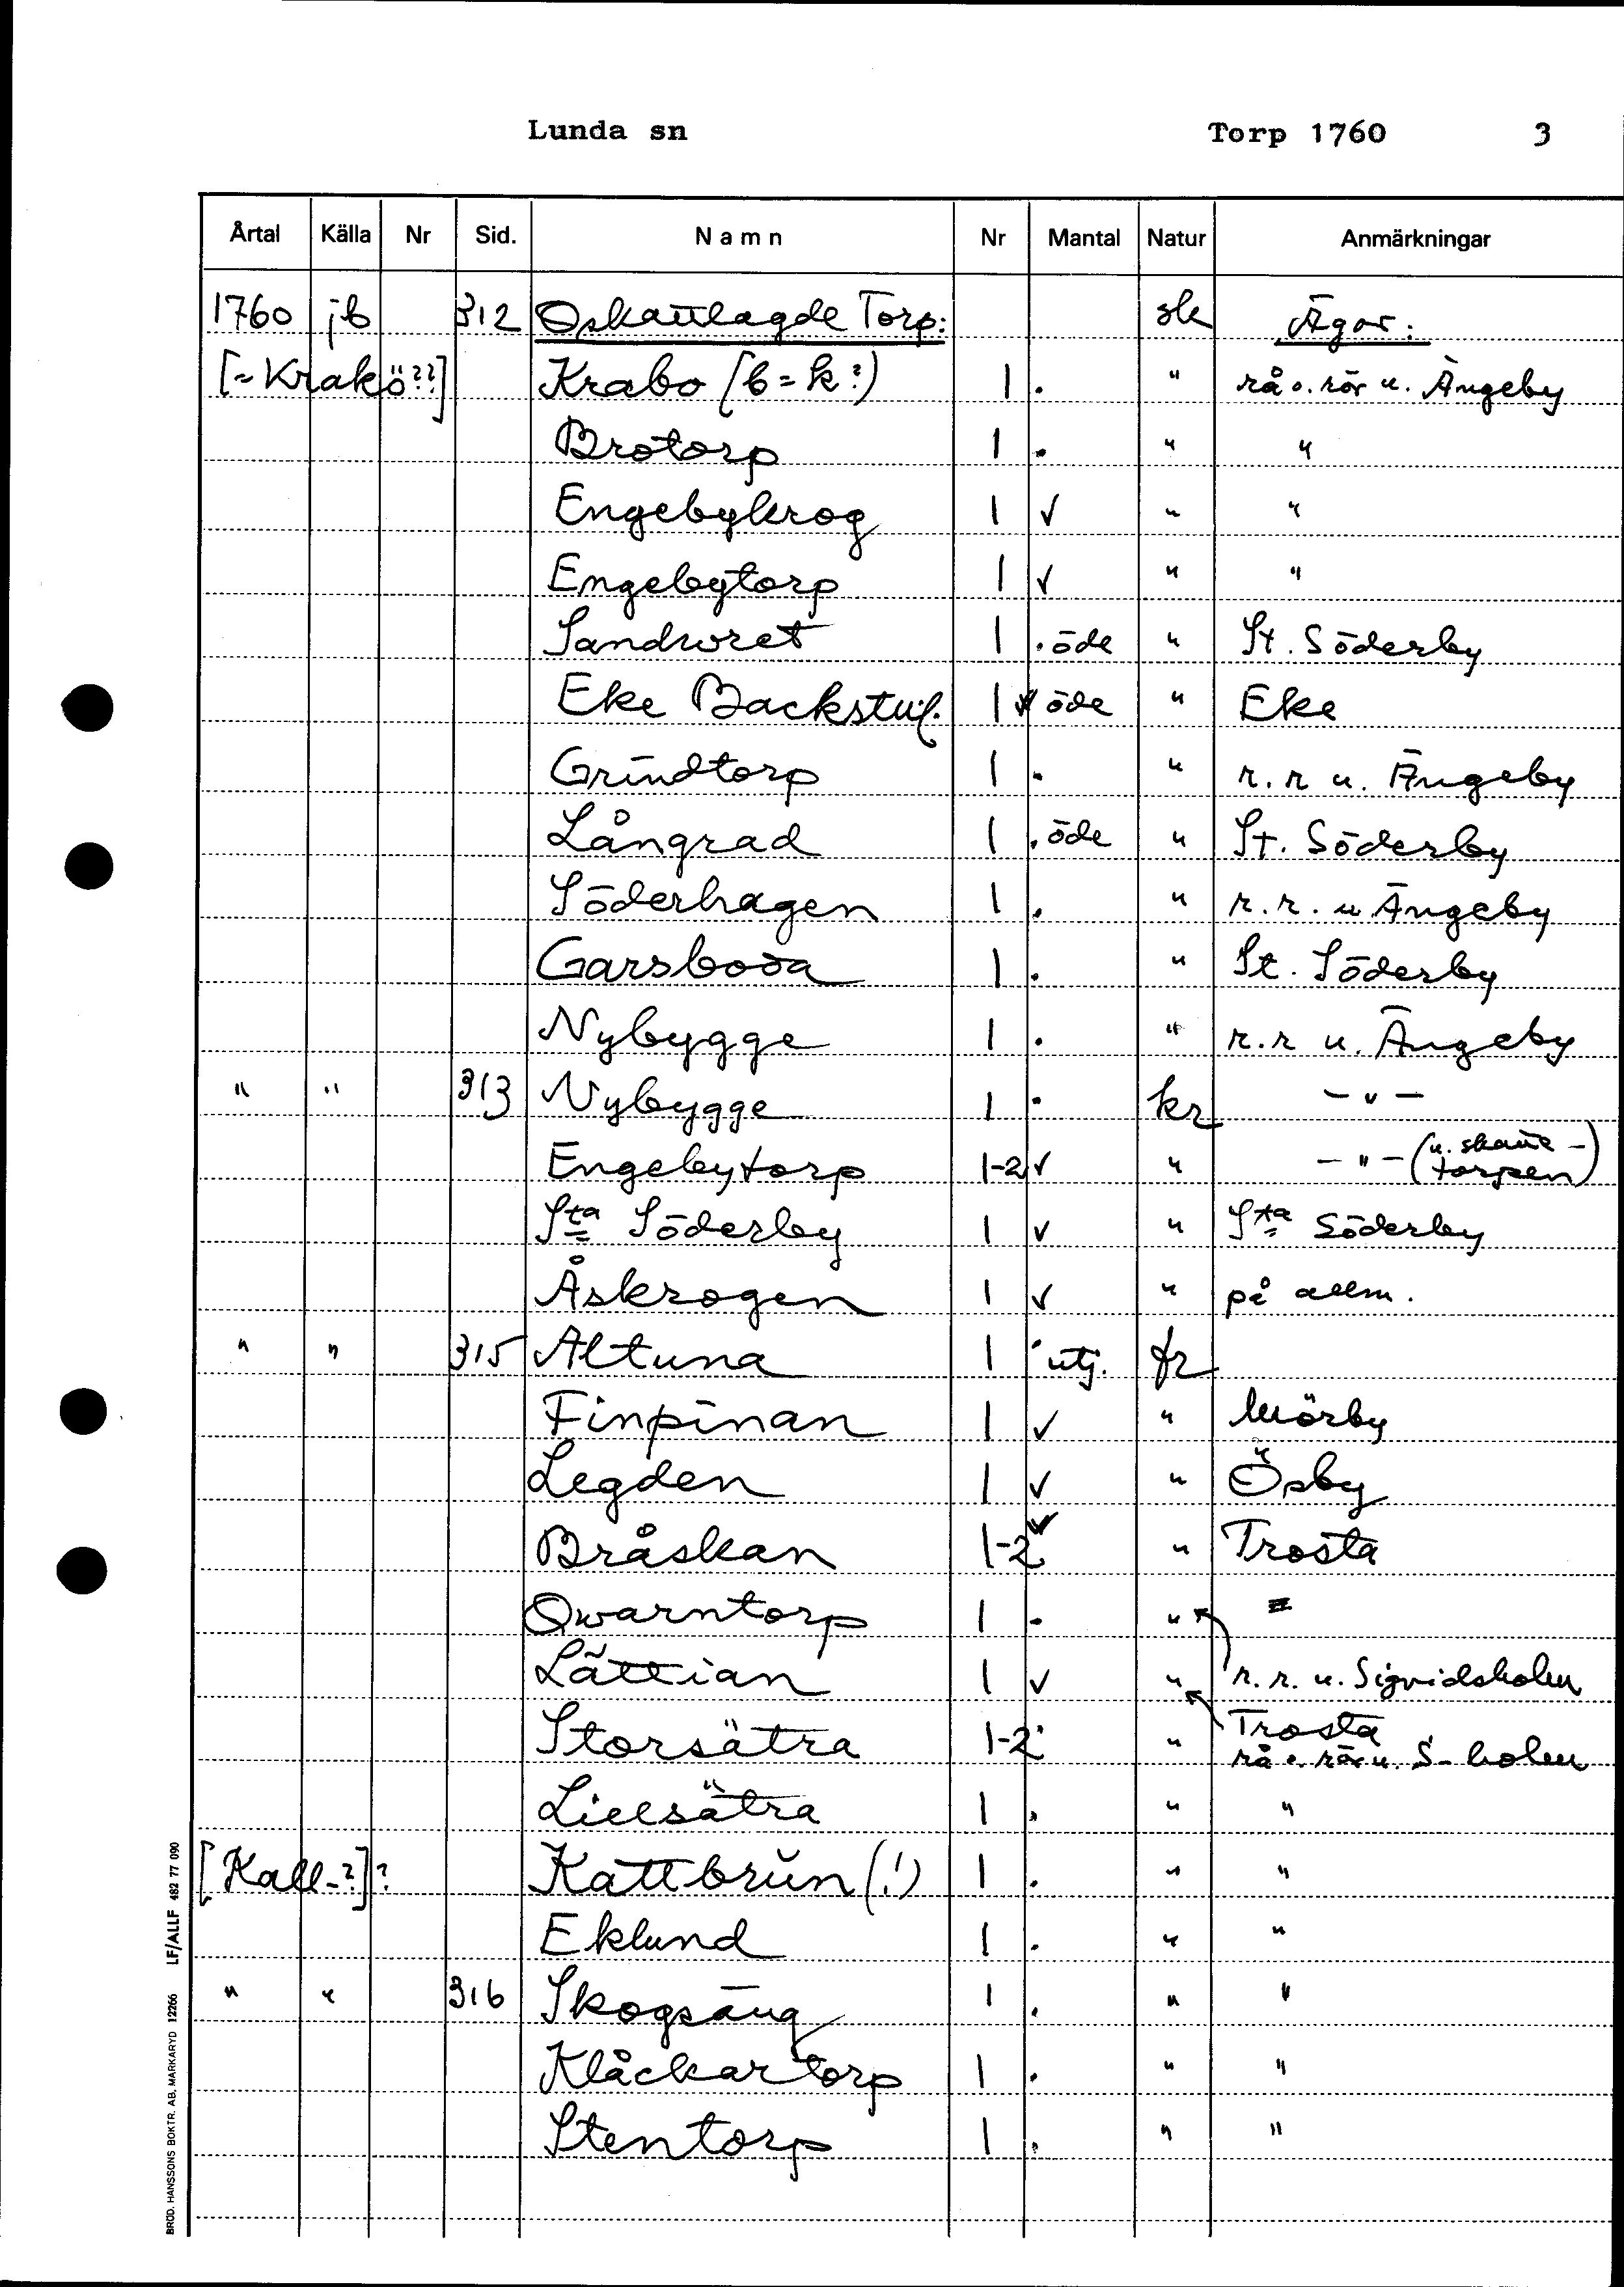 Lunda sn Torp 1760 3
Årtal Källa Nr Sid. Namn Nr Mantal Natur Anmärkningar
1760 jb 312 Oskattlagde Torp: sk Ägor:
[=Krakö??] Krabo (b=k?) 1 . " rå o. rör u. Ängeby
Brotorp 1 . " "
Engebykrog 1 ✓ " "
Engebytorp 1 ✓ " "
Sandwret 1 . öde " St. Söderby
Eke Backstuf. 1 ✓ öde " Eke
Grindtorp 1 . " r. r u. Ängeby
Långrad 1 . öde " St. Söderby
Söderhagen 1 . " r. r. u Ängeby
Garsboda 1 . " St. Söderby
Nybygge 1 . " r. r u. Ängeby
" " 313 Nybygge 1 . kr - " -
Engebytorp 1-2 ✓ " - " - (u. skatte-
torpen)
Sta Söderby 1 ✓ " Sta Söderby
Åskrogen 1 ✓ " på allm.
" " 315 Altuna 1 . utj. fr
Finpinan 1 ✓ " Mörby
Legden 1 ✓ " Ösby
Bråskan 1-2 ✓ " Trosta
Qwarntorp 1 . "
Lättian 1 ✓ " r. r. u. Sigridsholm
Storsätra 1-2 . " Trosta
rå o. rör u. S-holm
Lillsätra 1 . " "
[Kall-?]? Kattbrun (!) 1 . " "
Eklund 1 . " "
" " 316 Skogsäng 1 . " "
Klåckartorp 1 . " "
Stentorp 1 . " "
BRÖD. HANSSONS BOKTR. AB, MARKARYD 12266 LF/ALLF 482 77 090